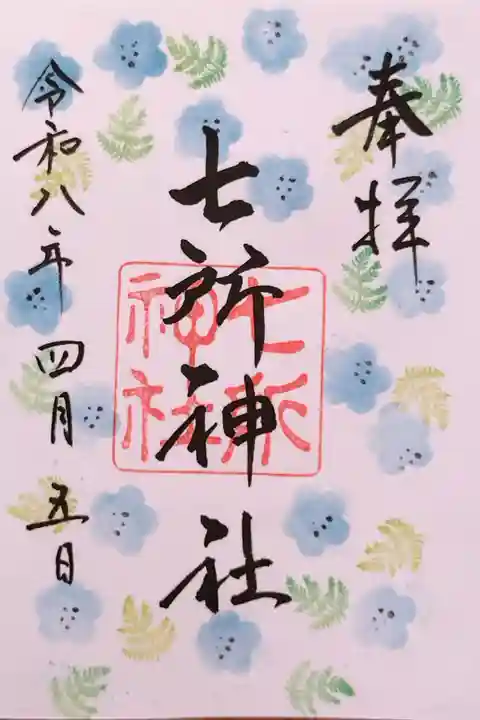 奉拝
七所神社
七所神社
令和八年四月五日